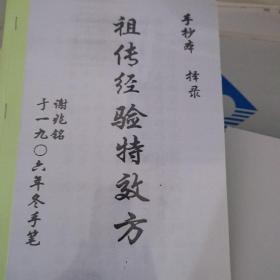 手抄本 择录
祖传经验特效方
谢兆铭
于一九〇六年冬手笔